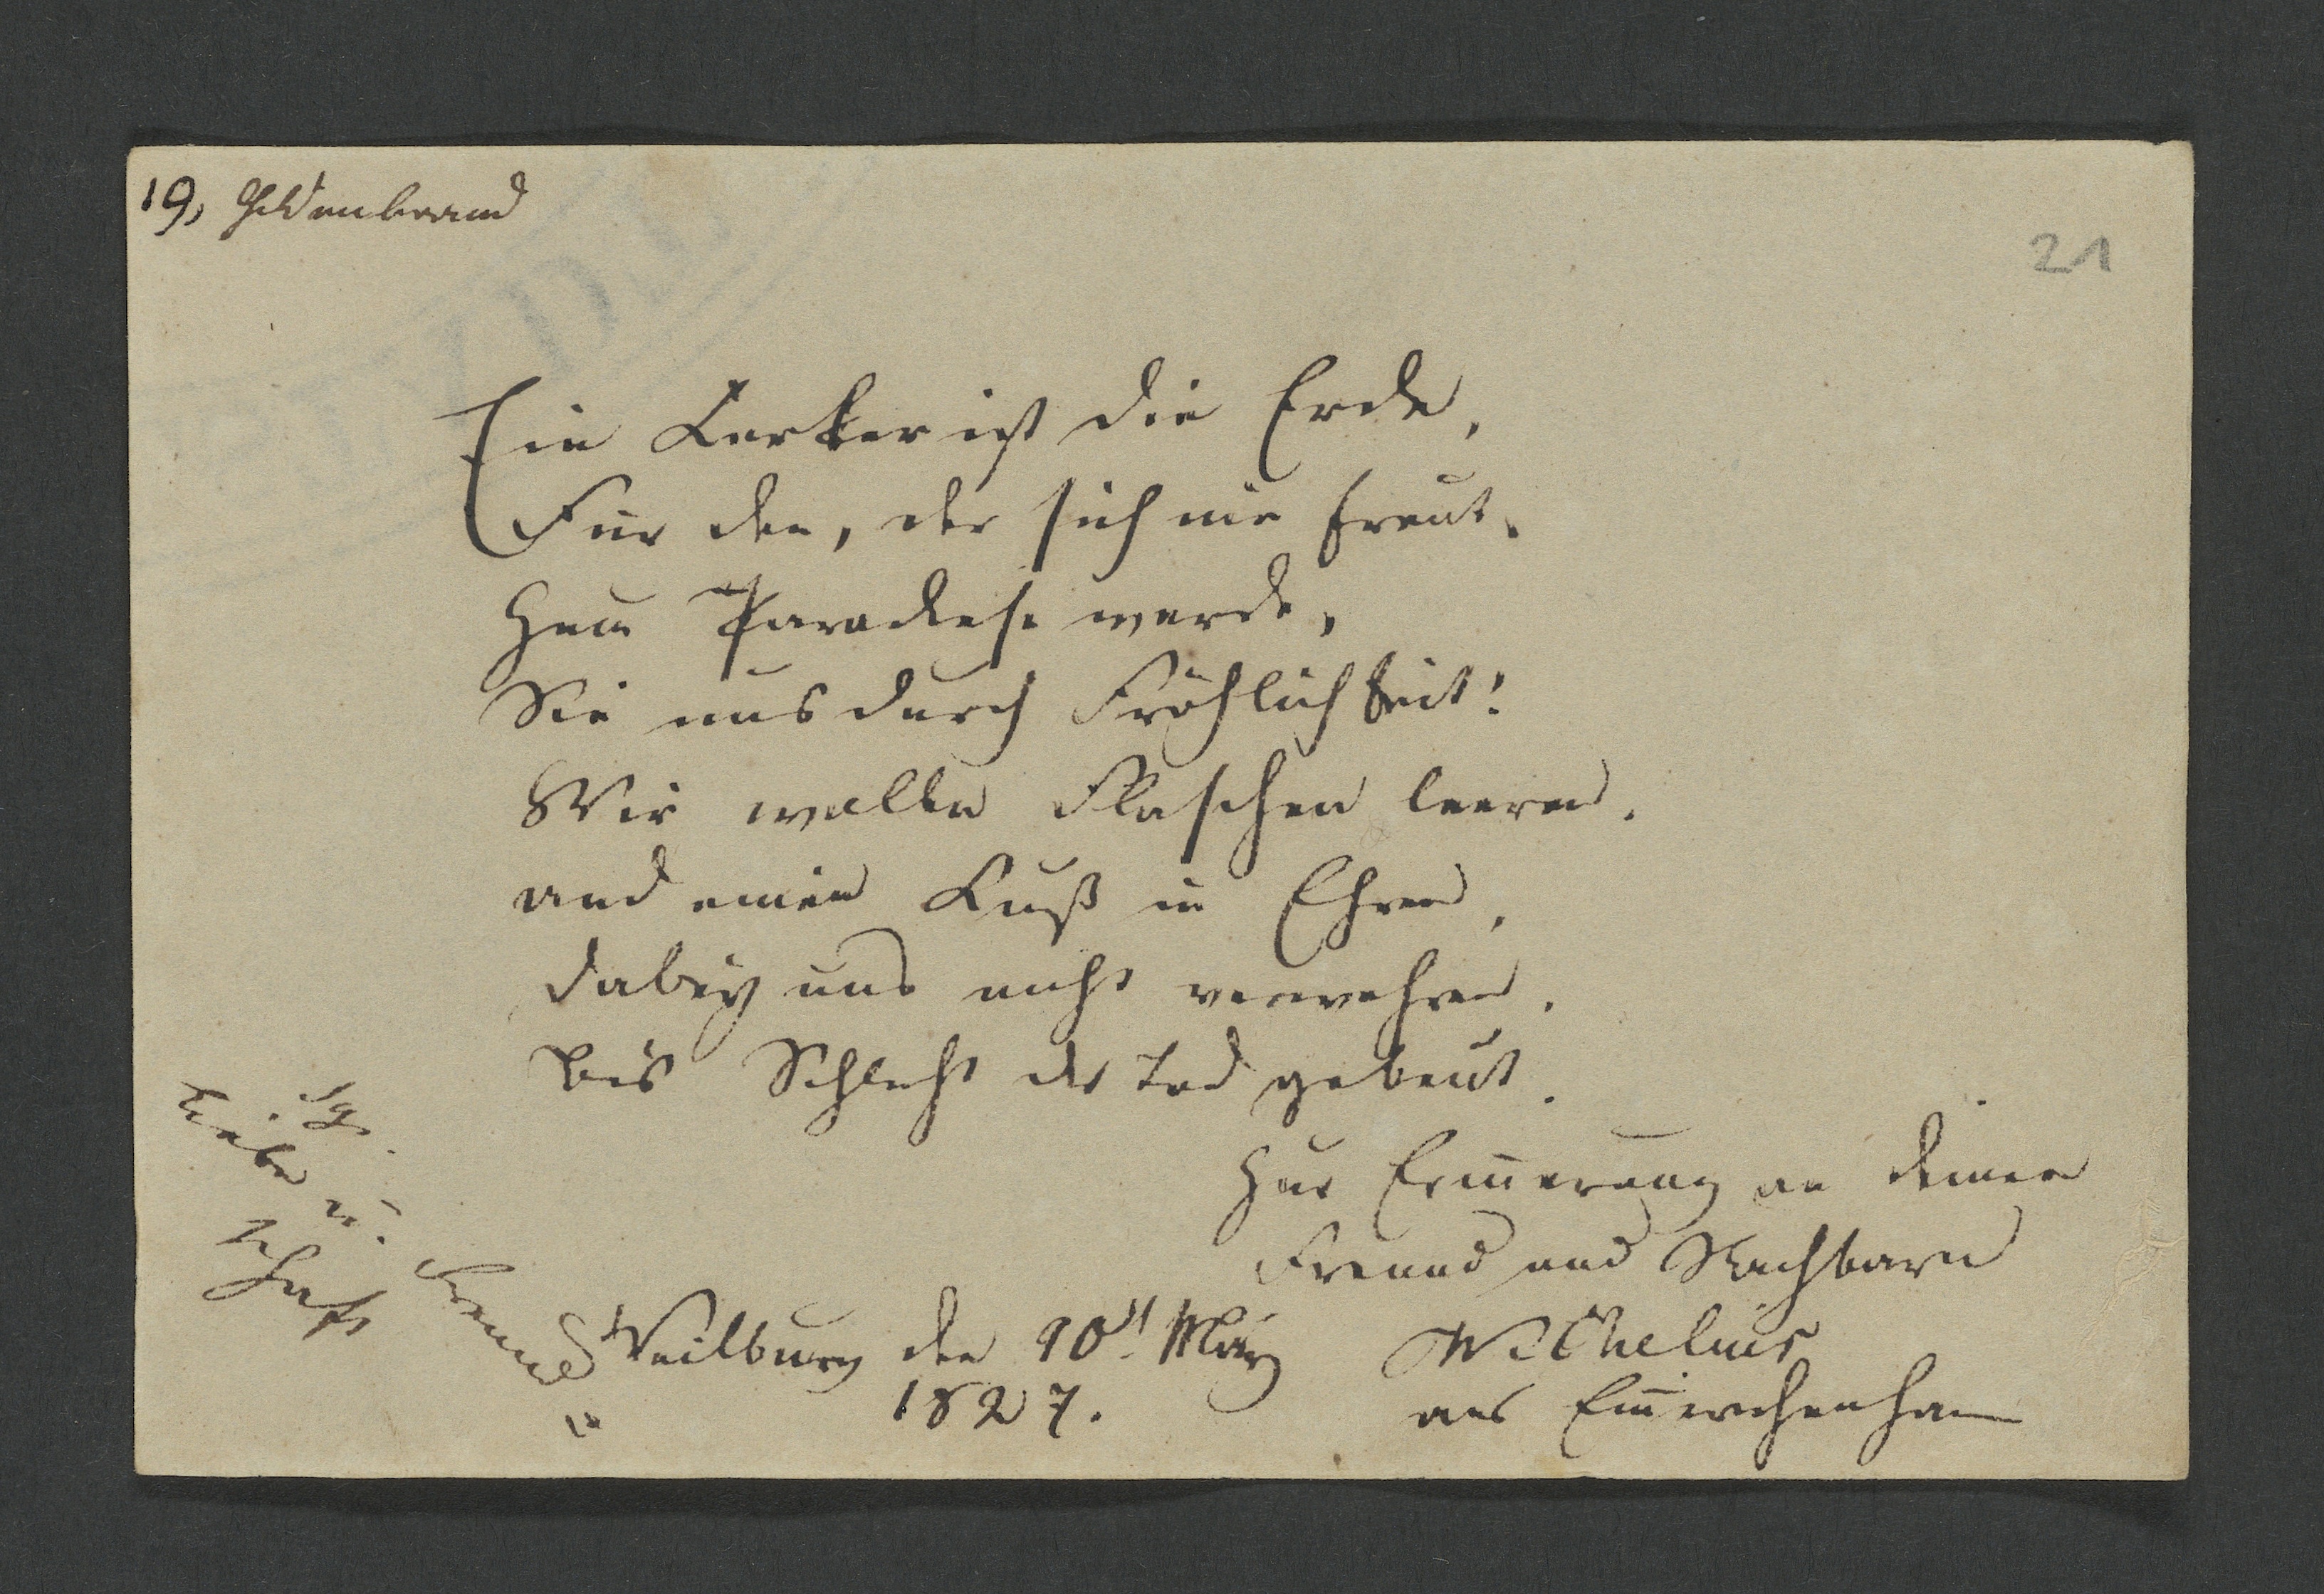 19, Hildenbrand
21
Ein Kerker ist die Erde,
Für den, der sich nie freut,
Zum Paradiese werde,
Sie uns durch Fröhlichkeit!
Wir wollen Flaschen leeren,
und einen Kuß in Ehren,
dabey uns nicht verwehren,
bis Schlicht der Tod gebeut.
Zur Erinnerung an deinen
Freund und Nachbarn
Weilburg den 10t. März
1827.
aus Emmerichenhain
Sy.
Liebe u. Freund
schaft